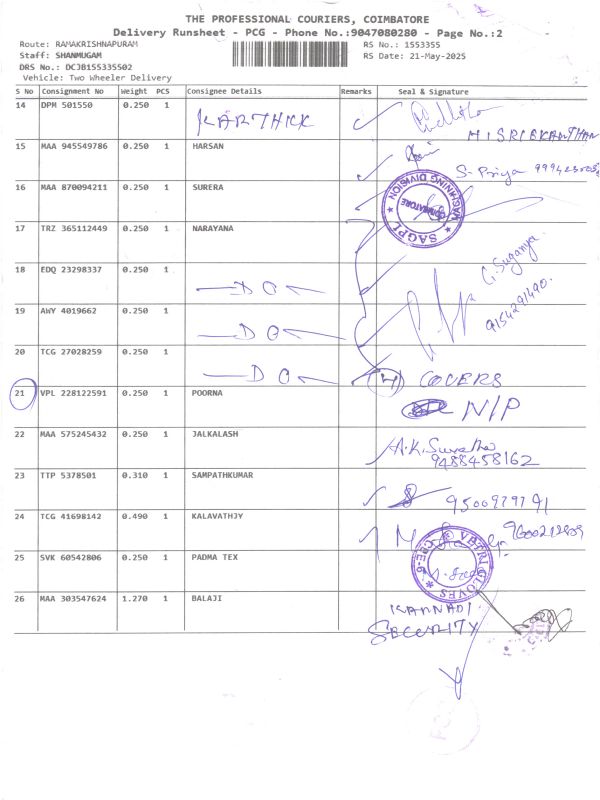 THE PROFESSIONAL COURIERS, COIMBATORE
Delivery Runsheet - PCG - Phone No.:9047080280 - Page No.:2
Route: RAMAKRISHNAPURAM
RS No.: 1553355
Staff: SHANMUGAM
RS Date: 21-May-2025
DRS No.: DCJB155335502
Vehicle: Two Wheeler Delivery
S No Consignment No Weight PCS Consignee Details Remarks Seal & Signature
14 DPM 501550 0.250 1 KARTHICK
M SRIEKANTHAN
15 MAA 945549786 0.250 1 HARSAN
S. Priya
16 MAA 870094211 0.250 1 SURERA
SAGPL WASHING DIVISION COIMBATORE
17 TRZ 365112449 0.250 1 NARAYANA
18 EDQ 23298337 0.250 1 — DO —
G. Suganya
9154291490
19 AWY 4019662 0.250 1 — DO —
20 TCG 27028259 0.250 1 — DO — (4) COVERS
21 VPL 228122591 0.250 1 POORNA N/P
22 MAA 575245432 0.250 1 JALKALASH
9488458162
23 TTP 5378501 0.310 1 SAMPATHKUMAR
24 TCG 41698142 0.490 1 KALAVATHJY
25 SVK 60542806 0.250 1 PADMA TEX
VETRI GLOVES CBE-6
26 MAA 303547624 1.270 1 BALAJI
KANNADI
SECURITY